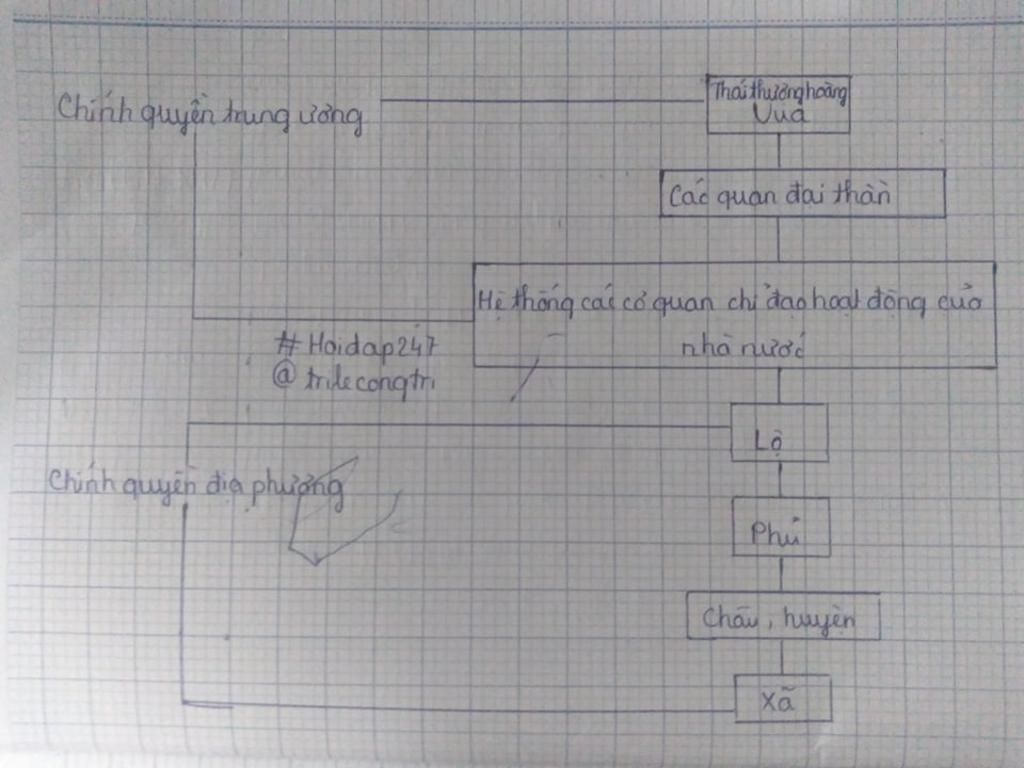 Thái thượng hoàng
Chính quyền trung ương
Vua
Các quan đại thần
Hệ thống các cơ quan chỉ đạo hoạt động của
nhà nước
#Hoidap247
@trilecongtri
Lộ
Chính quyền địa phương
Phủ
Châu, huyện
Xã